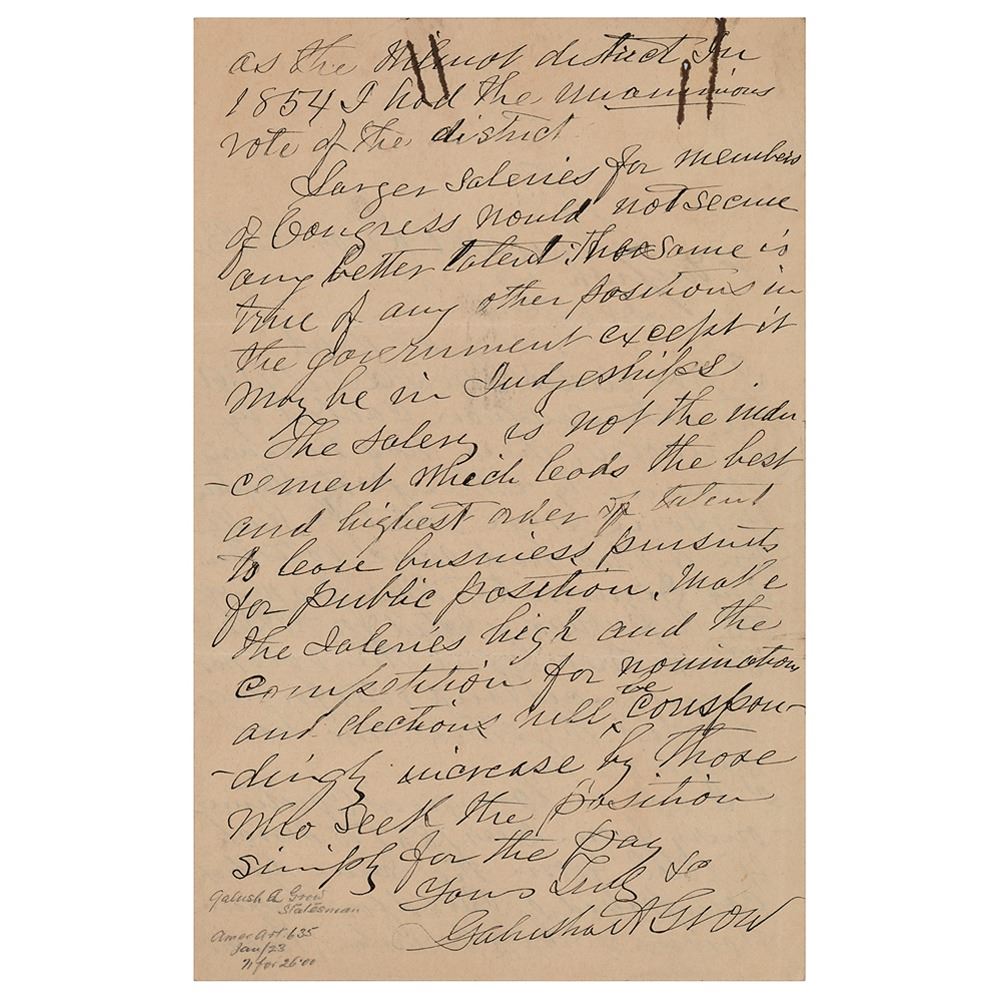 as the Wilmot district, In
1854 I had the unanimous
vote of the district
Larger saleries for members
of Congress would not secure
any better talent. The same is
true of any other positions in
the government except it
may be in Judgeships
The salery is not the indu-
-cement which leads the best
and highest order of talent
to leave business pursuits
for public position. Make
the saleries high and the
competition for nominations
and elections will be correspon-
-dingly increase by those
who seek the position
simply for the pay
Yours Truly &c
Galusha A Grow
Galush A Grow
Statesman
Amer Art. 635
Jan/23
for 26.00